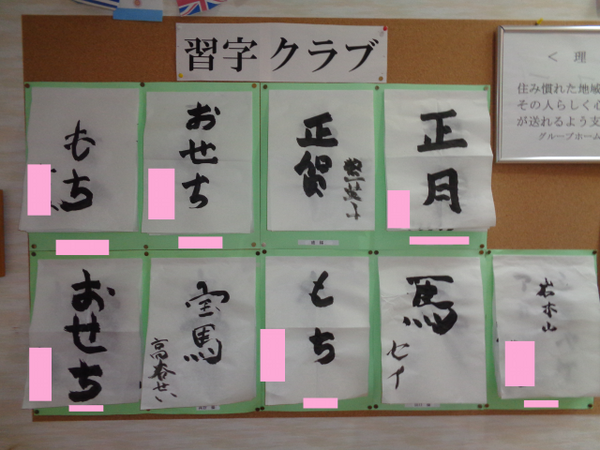 習字クラブ
もち
おせち
正賀
正月
おせち
宝馬
もち
馬
セイ
岩木山
< 理
住み慣れた地域
その人らしく心
が送れるよう支
グループホーム